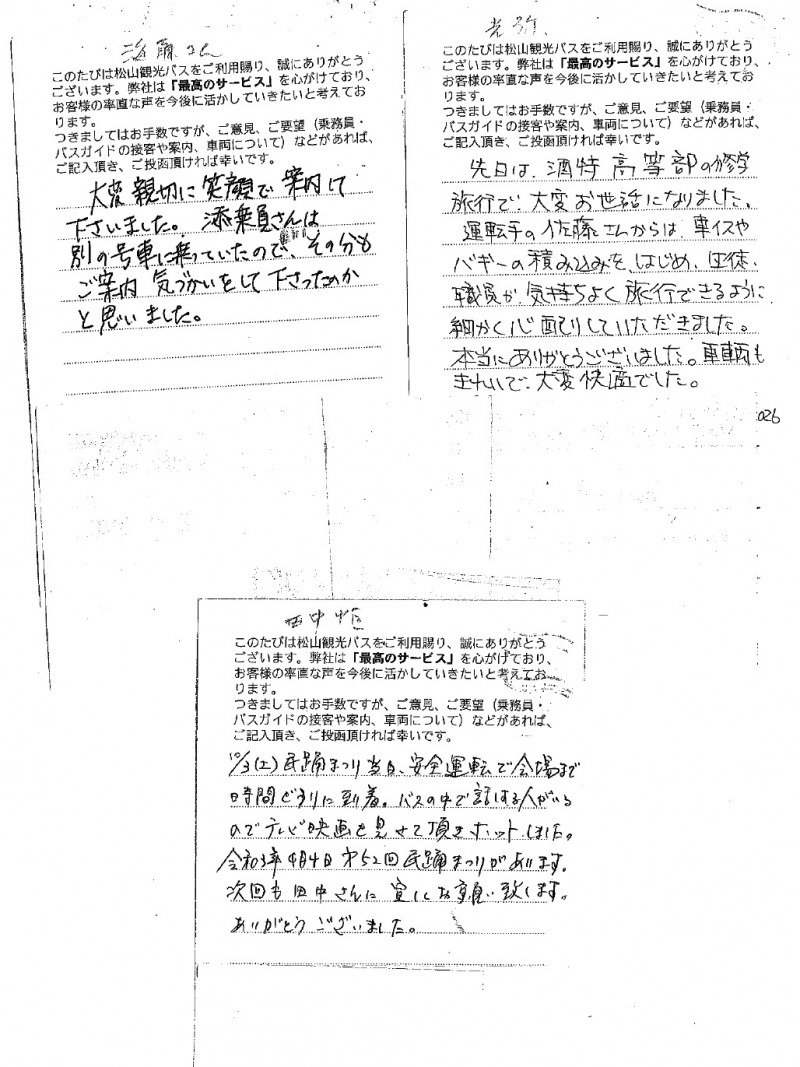 このたびは松山観光バスをご利用賜り、誠にありがとう
ございます。弊社は「最高のサービス」を心がけており、
お客様の率直な声を今後に活かしていきたいと考えてお
ります。
つきましてはお手数ですが、ご意見、ご要望（乗務員・
バスガイドの接客や案内、車両について）などがあれば、
ご記入頂き、ご投函頂ければ幸いです。
大変親切に笑顔で案内して
下さいました。添乗員さんは
別の号車に乗っていたので、その分も
ご案内 気づかいをして下さったのか
と思いました。
このたびは松山観光バスをご利用賜り、誠にありがとう
ございます。弊社は「最高のサービス」を心がけており、
お客様の率直な声を今後に活かしていきたいと考えてお
ります。
つきましてはお手数ですが、ご意見、ご要望（乗務員・
バスガイドの接客や案内、車両について）などがあれば、
ご記入頂き、ご投函頂ければ幸いです。
先日は、酒特 高等部の修学
旅行で、大変お世話になりました、
運転手の佐藤さんからは、車イスや
バギーの積み込みを、はじめ、生徒、
職員が、気持ちよく旅行できるように
細かく心配りしていただきました。
本当にありがとうございました。車輌も
きれいで、大変快適でした。
026
田中
このたびは松山観光バスをご利用賜り、誠にありがとう
ございます。弊社は「最高のサービス」を心がけており、
お客様の率直な声を今後に活かしていきたいと考えてお
ります。
つきましてはお手数ですが、ご意見、ご要望（乗務員・
バスガイドの接客や案内、車両について）などがあれば、
ご記入頂き、ご投函頂ければ幸いです。
10/3(土)民踊まつり当日、安全運転で会場まで
時間どうりに到着。バスの中で話する人がいる
のでテレビ映画を見せて頂きホットしました。
令和3年4月4日 第52回民踊まつりがあります。
次回も田中さんに宜しくお願い致します。
ありがとうございました。